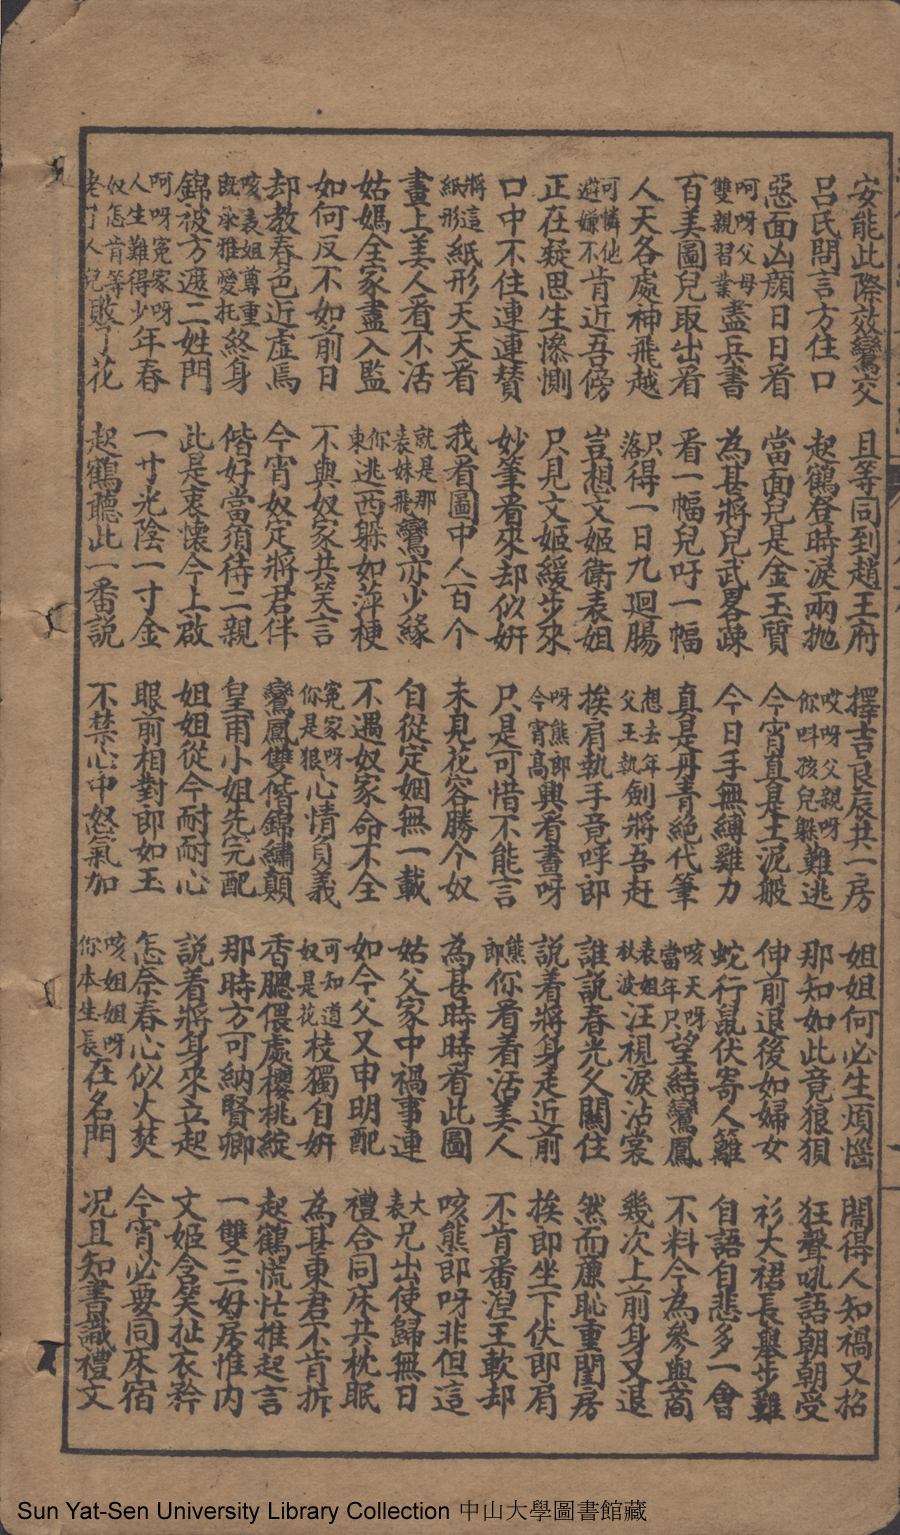 安能此際效鸞交　且等同到趙王府　擇吉良辰共一房　姐姐何必生煩惱　鬧得人知禍又招
呂氏問言方住口　起鶴登時淚兩拋　哎呀父親呀你叫孩兒躲難逃　那知如此竟狼狽　狂聲吼語朝朝受
惡面凶顏日日看　當面兒是金玉質　今宵直是土泥般　伸前退後如婦女　衫大裙長舉步難
呵呀父母雙親習業盡兵書　為甚將兒武畧疎　今日手無縛雞力　蛇行鼠伏寄人籬　自語自悲多一會
百美圖兒取出看　看一幅兒吁一幅　真是丹青絕代筆　咳天呀當年只望結鸞鳳　不料今為參與商
人天各處神飛越　只落得一日九迴腸　想去年父王執劍將吾赶　表姐秋波汪視淚沾裳　幾次上前身又退
可憐他避嫌不肯近吾傍　豈想文姬衛表姐　挨肩執手竟呼郎　誰説春光父關住　然而亷恥重閨房
正在疑思生慘惻　只見文姬緩步來　呀熊郎今宵高興看畫呀　説着將身走近前　挨即坐下伏即肩
口中不住連連贊　妙筆看來却似妍　只是可惜不能言　熊郎你看着活美人　不肯番湼王軟却
將這紙形紙形天天看　我看圖中人百个　未見花容勝个奴　為甚時時看此圖　咳熊郎呀非但這
畫上美人看不活　就是那表妹飛鸞亦少緣　自從定姻無一載　姑父家中禍事連　大表兄出使歸無日
姑媽全家盡入監　你東逃西躲如萍梗　不遇奴家命不全　如今父又申明配　禮合同床共枕眠
如何反不如前日　不與奴家共笑言　寃家呀你是狠心情負義　可知道奴是花枝獨自妍　為甚東君不肯拆
却教春色近虛焉　今宵奴定將君伴　鸞鳳雙偕錦繡顛　香腮偎處櫻桃綻　起鶴慌忙推起言
咳表姐尊重既承雅愛托終身　偕好當須待二親　皇甫小姐先完配　那時方可納賢卿　一雙三好房惟内
錦被方遮二姓門　此是衷懷今上啟　姐姐從今耐耐心　説着將身來立起　文姬含笑扯衣衿
呵呀寃家呀人生難得少年春　一寸光陰一寸金　眼前相對郎如玉　怎奈春心似火焚　今宵必要同床宿
奴怎肯等老了人兒敗了花　起鶴聽此一番説　不禁心中怒氣加　咳姐姐呀你本生長在名門　况且知書識禮文
Sun Yat-Sen University Library Collection 中山大學圖書館藏